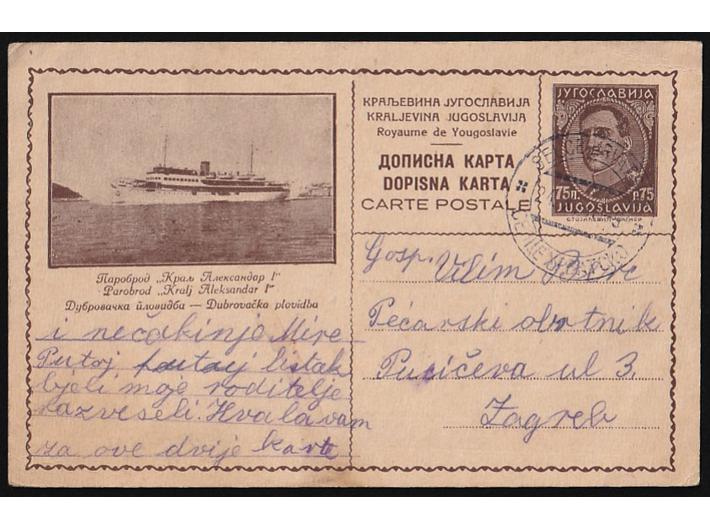 КРАЉЕВИНА ЈУГОСЛАВИЈА
KRALJEVINA JUGOSLAVIJA
Royaume de Yougoslavie
ДОПИСНА КАРТА
DOPISNA KARTA
CARTE POSTALE
ЈУГОСЛАВИЈА
75п. p.75
JUGOSLAVIJA
Пароброд „Краљ Александар I"
Parobrod „Kralj Aleksandar I"
Дубровачка пловидба — Dubrovačka plovidba
i nećakinje Mire
Putoj listak
bjeli moje roditelje
razveseli. Hvala vam
za ove dvije karte
Gosp. Vilim
Pećarski obrtnik
Pucićeva ul 3.
Zagreb